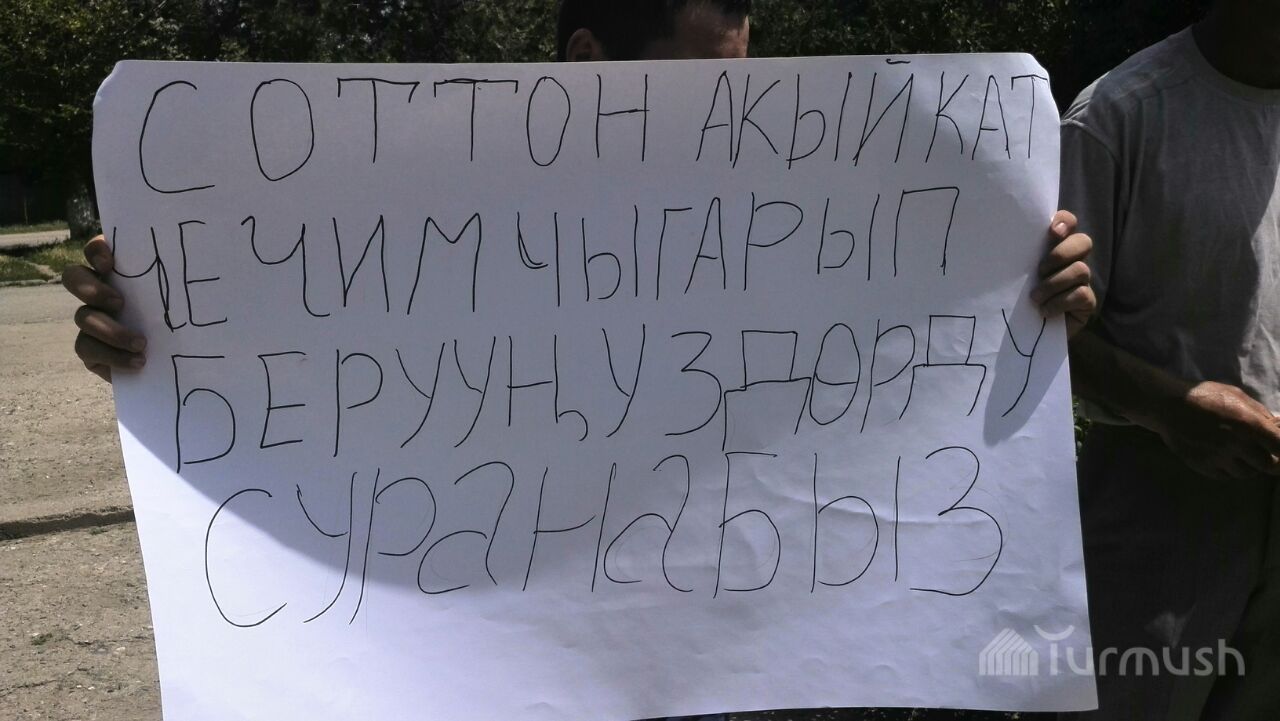 СОТТОН АКЫЙКАТ
ЧЕЧИМ ЧЫГАРЫП
БЕРУУҢУЗДӨРДУ
СУРАНАБЫЗ
Turmush